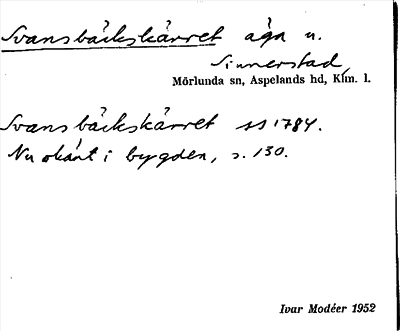 Svansbäckskärret äga u.
Sinnerstad,
Mörlunda sn, Aspelands hd, Klm. l.
Svansbäckskärret ss 1784.
Nu okänt i bygden, s. 130.
Ivar Modéer 1952